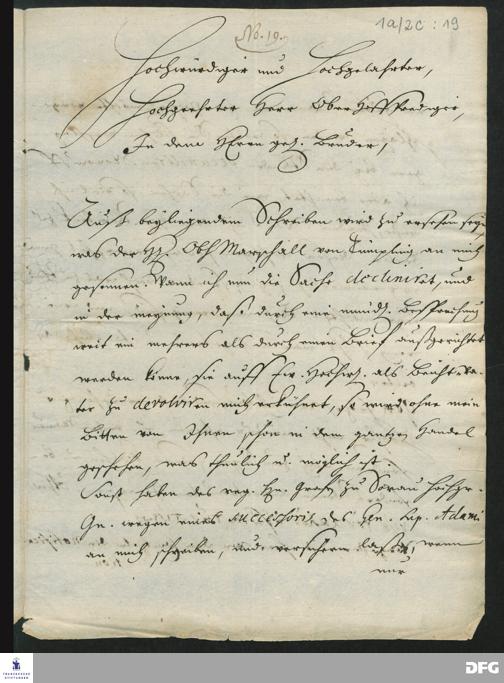 No. 19.
1a/2c : 19
Hochwürdiger und Hochgelahrter,
Hochgeehrter Herr Ober Hoff Prediger,
In dem HErrn gel. Bruder,
Auß beyliegendem Schreiben wird zu ersehen seyn
was der H. Obh Marschall von Tümpling an mich
gesonnen. Wann ich nun die Sache declinirt, und
in der meynung, daß durch eine mündl. Besprechung
weit ein mehrers als durch einen Brief außgerichtet
werden könne, sie auff Ew. Hochw. als Beichtva-
ter zu devolviren mich erkühnet, so wird ohne mein
Bitten von Ihnen schon in dem gantzen Handel
geschehen, was thunlich u. möglich ist.
Sonst haben des reg. Hn. Grafen zu Sorau Hochgr.
Gn. wegen eines successoris des Hen. Sup. Adami
an mich schreiben, und versichern laßen, wenn
nur
FRANCKESCHE
STIFTUNGEN
DFG